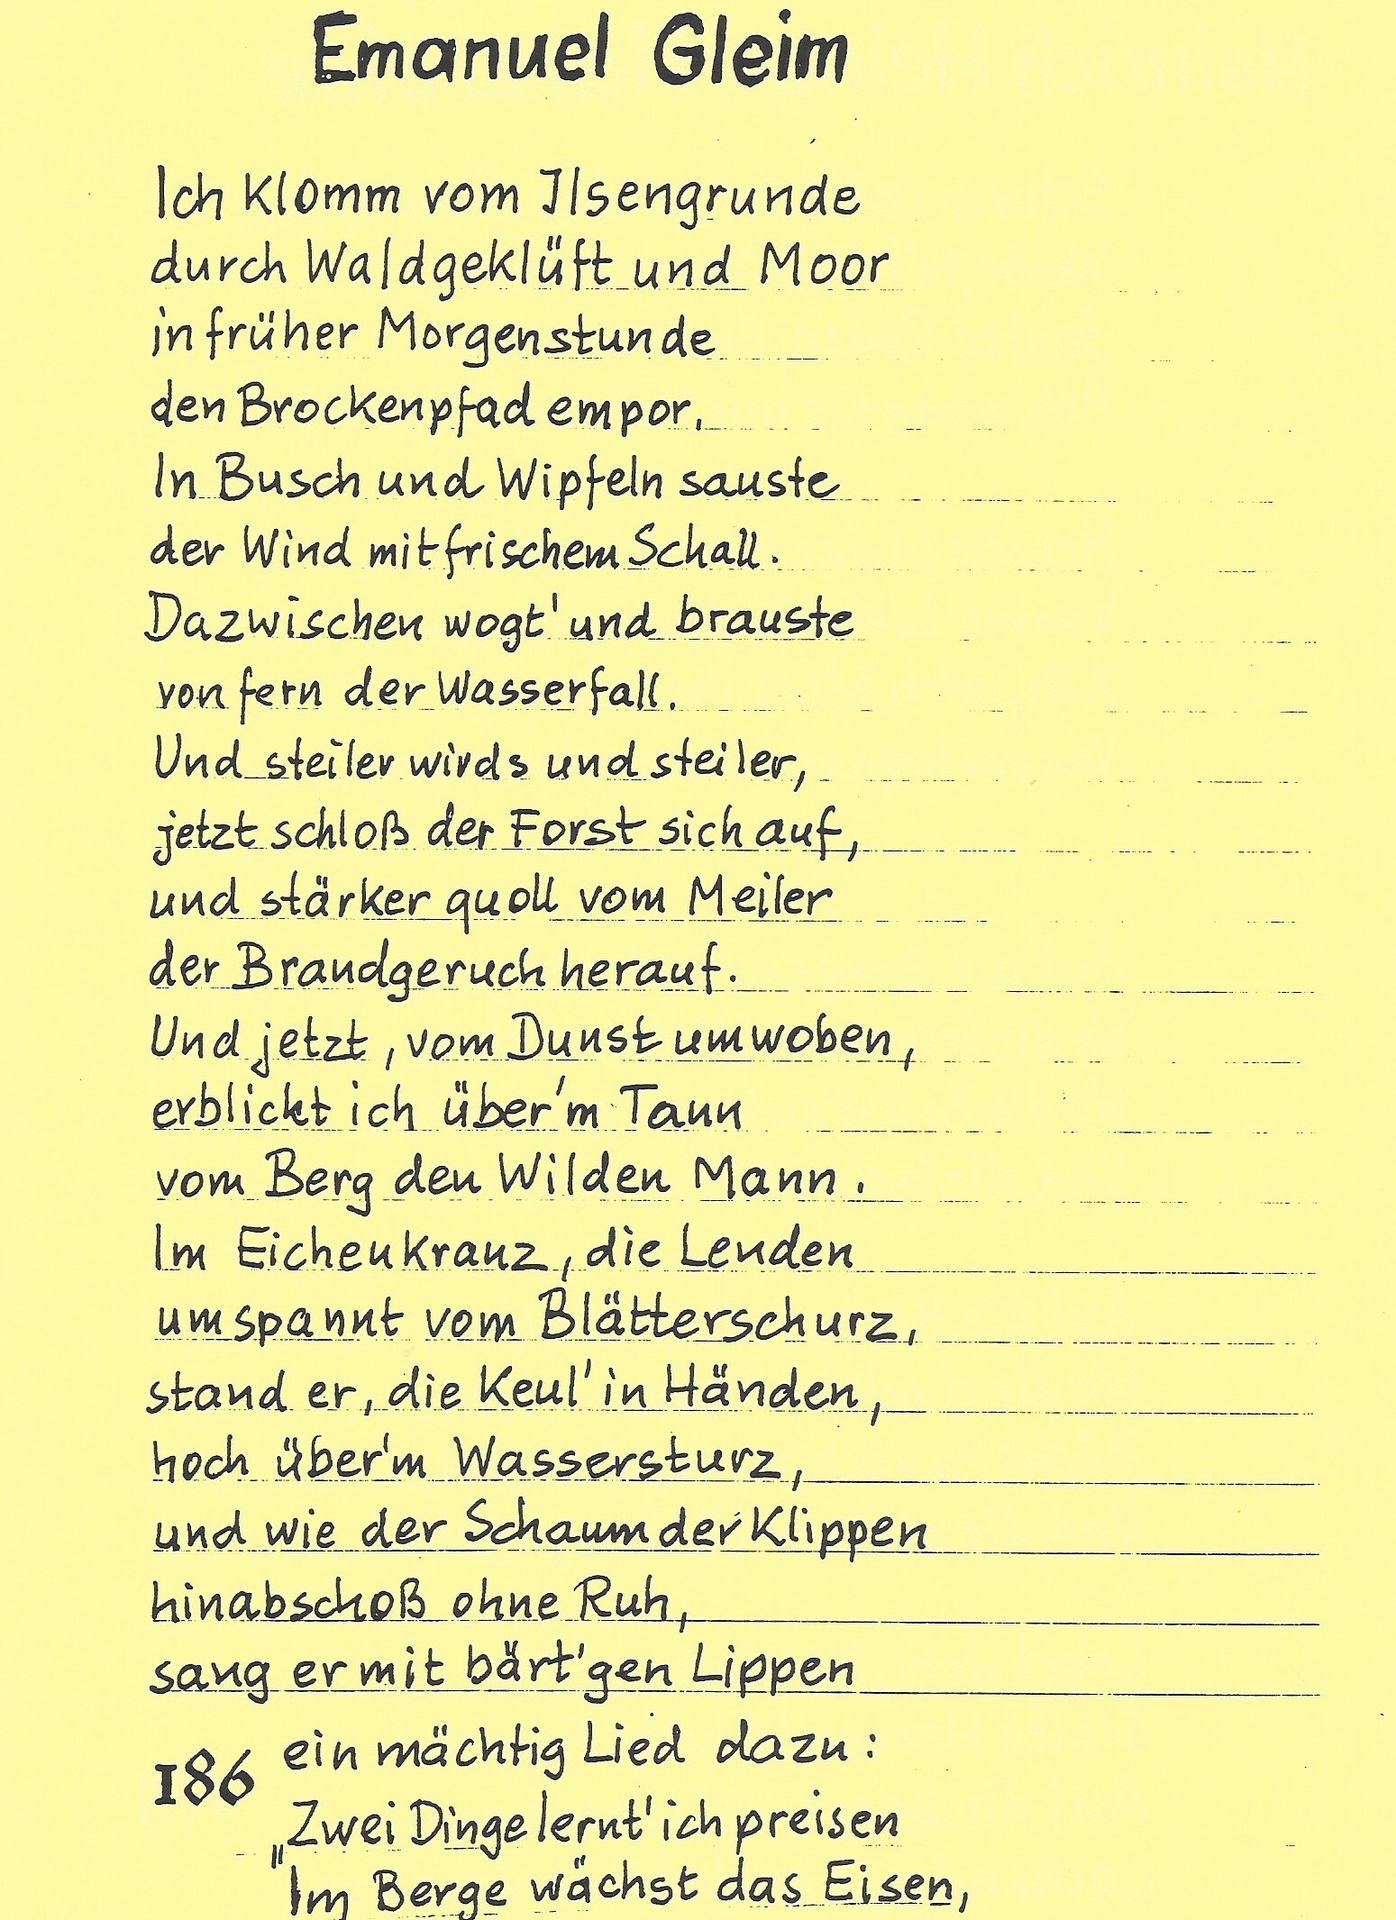 Emanuel Gleim
Ich klomm vom Ilsengrunde
durch Waldgeklüft und Moor
in früher Morgenstunde
den Brockenpfad empor.
In Busch und Wipfeln sauste
der Wind mit frischem Schall.
Dazwischen wogt' und brauste
von fern der Wasserfall.
Und steiler wirds und steiler,
jetzt schloß der Forst sich auf,
und stärker quoll vom Meiler
der Brandgeruch herauf.
Und jetzt, vom Dunst umwoben,
erblickt ich über'm Tann
vom Berg den Wilden Mann.
Im Eichenkranz, die Lenden
umspannt vom Blätterschurz,
stand er, die Keul' in Händen,
hoch über'm Wassersturz,
und wie der Schaum der Klippen
hinabschoß ohne Ruh,
sang er mit bärt'gen Lippen
ein mächtig Lied dazu:
186
„Zwei Dinge lernt' ich preisen
Im Berge wächst das Eisen,